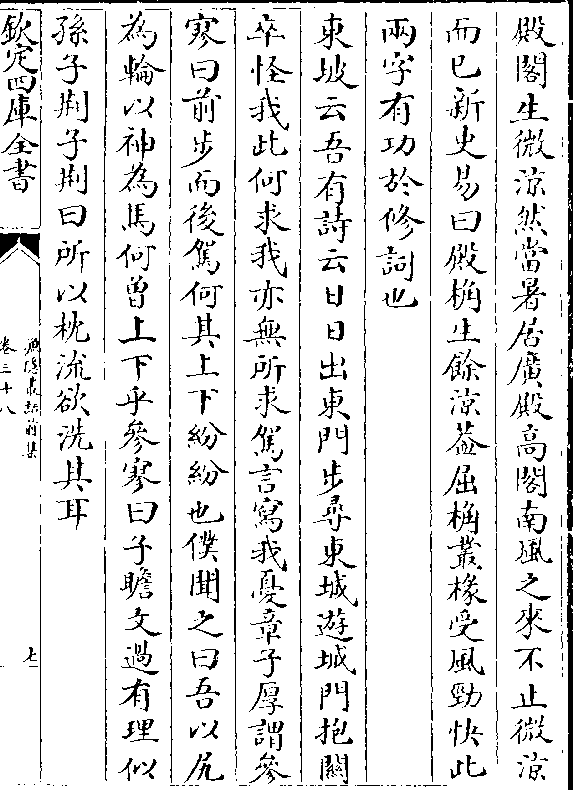 殿閣生微涼然當暑居廣殿高閣南風之來不止微涼
而已新史易曰殿桷生餘涼葢屈桷叢椽受風勁快此
兩字有功於修詞也
東坡云吾有詩云日日出東門步尋東城遊城門抱關
卒怪我此何求我亦無所求駕言寫我憂章子厚謂參
寥曰前步而後駕何其上下紛紛也僕聞之曰吾以尻
為輪以神為馬何曾上下乎參寥曰子瞻文過有理似
孫子荆子荆曰所以枕流欲洗其耳
欽定四庫全書
漁隱叢話前集
卷三十八
七